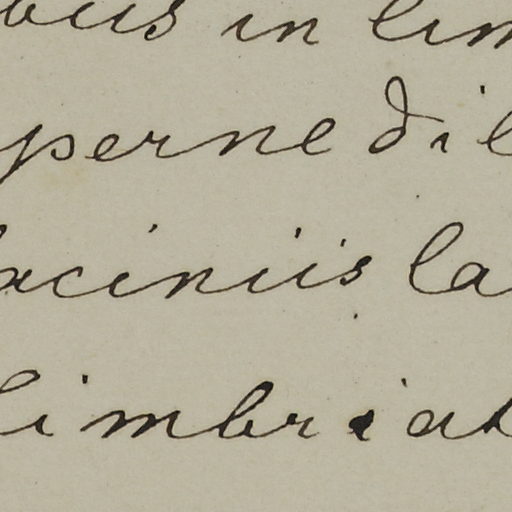 bus in lim
perne dil
aciniis la
limbriat